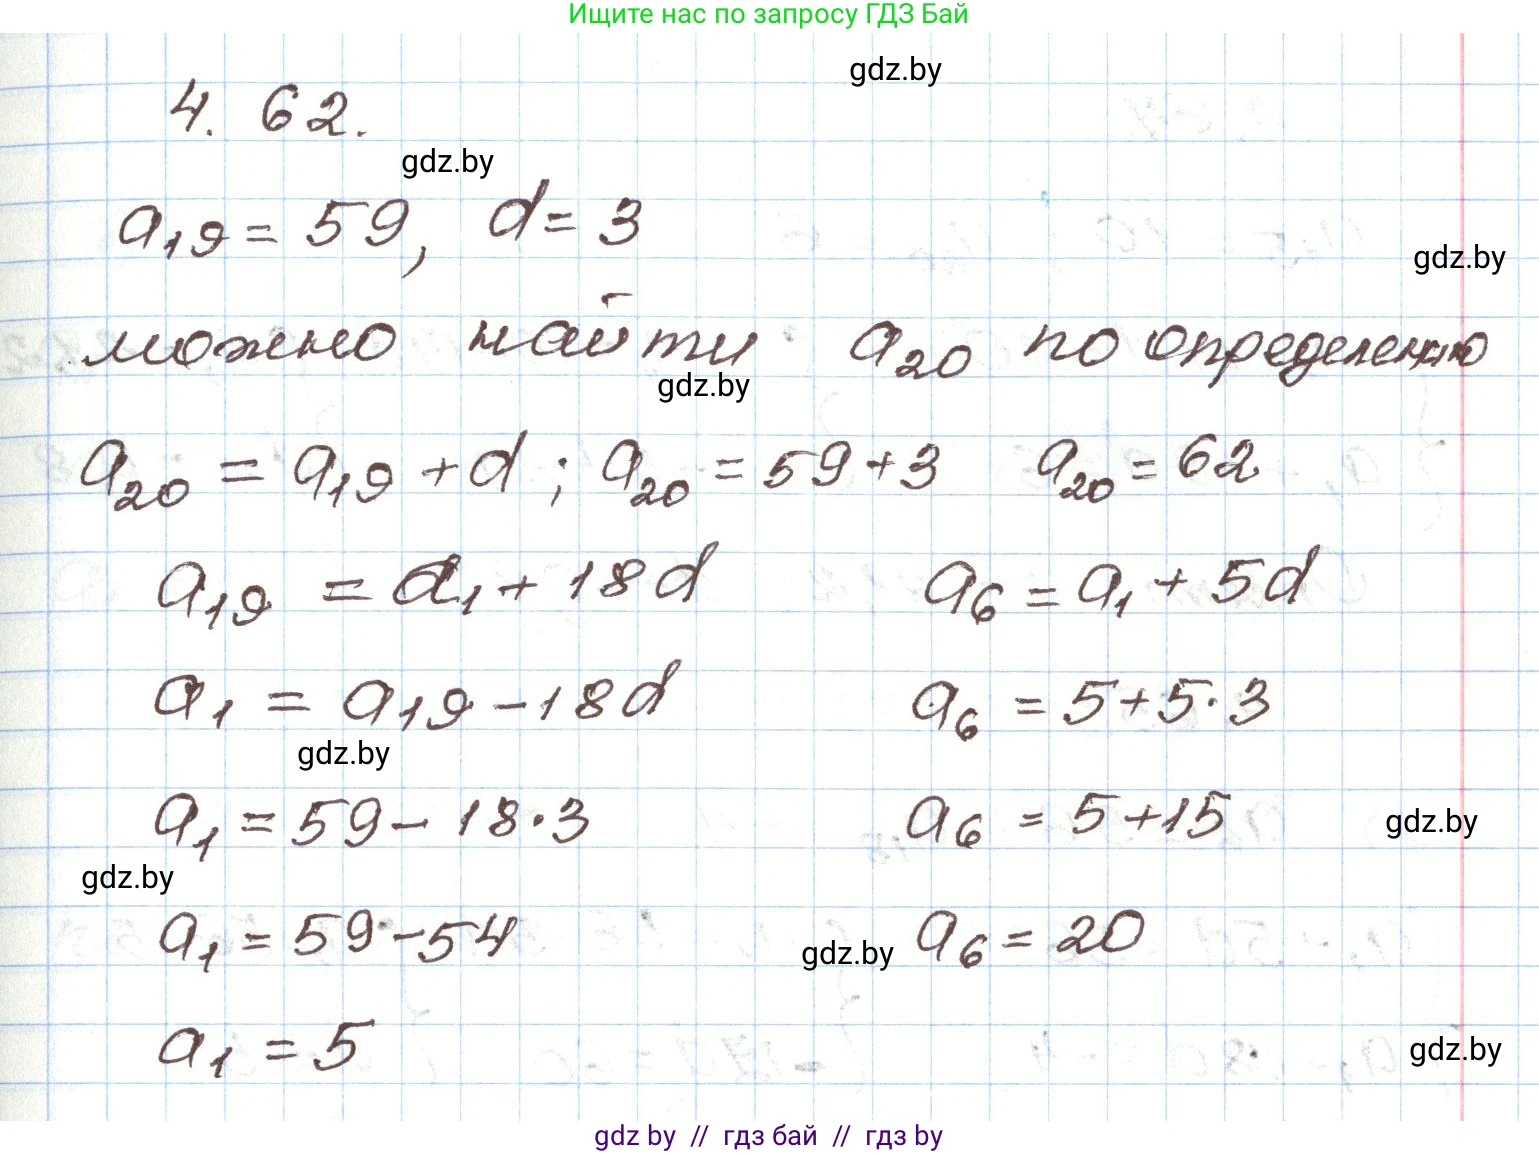 Ищите нас по запросу ГДЗ Бай
gdz.by
4. 62.
gdz.by
a₁₉ = 59, d = 3
gdz.by
можно найти a₂₀ по определению
gdz.by
a₂₀ = a₁₉ + d ; a₂₀ = 59 + 3 a₂₀ = 62
a₁₉ = a₁ + 18d a₆ = a₁ + 5d
a₁ = a₁₉ - 18d a₆ = 5 + 5·3
gdz.by
a₁ = 59 - 18·3 a₆ = 5 + 15 gdz.by
gdz.by
a₁ = 59 - 54 gdz.by a₆ = 20
a₁ = 5 gdz.by
gdz by // гдз бай // гдз by